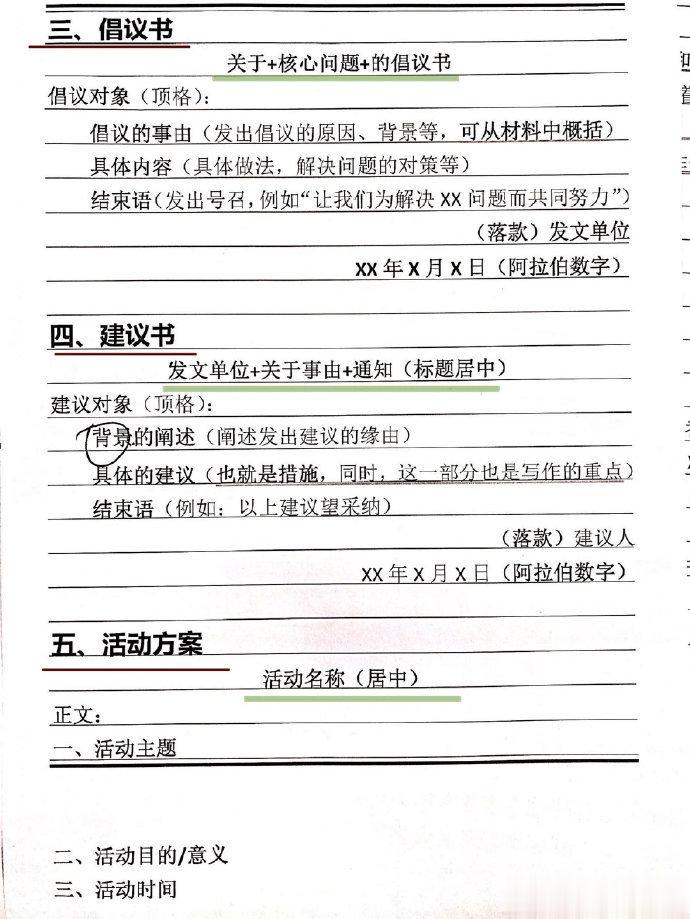 三、倡议书
关于+核心问题+的倡议书
倡议对象（顶格）：
倡议的事由（发出倡议的原因、背景等，可从材料中概括）
具体内容（具体做法，解决问题的对策等）
结束语（发出号召，例如“让我们为解决 XX 问题而共同努力”）
（落款）发文单位
XX 年 X 月 X 日（阿拉伯数字）
四、建议书
发文单位+关于事由+通知（标题居中）
建议对象（顶格）：
背景的阐述（阐述发出建议的缘由）
具体的建议（也就是措施，同时，这一部分也是写作的重点）
结束语（例如：以上建议望采纳）
（落款）建议人
XX 年 X 月 X 日（阿拉伯数字）
五、活动方案
活动名称（居中）
正文：
一、活动主题
二、活动目的/意义
三、活动时间